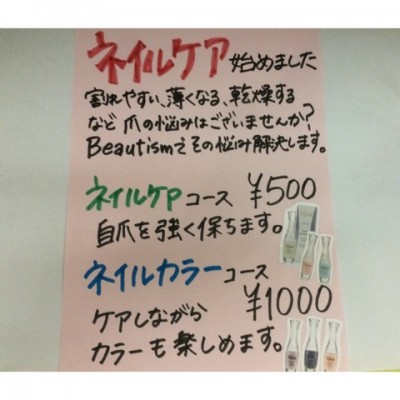 ネイルケア始めました
割れやすい、薄くなる、乾燥する
など爪の悩みはございませんか?
Beautismでその悩み解決します。
ネイルケアコース ¥500
自爪を強く保ちます。
ネイルカラーコース
¥1000
ケアしながら
カラーも楽しめます。